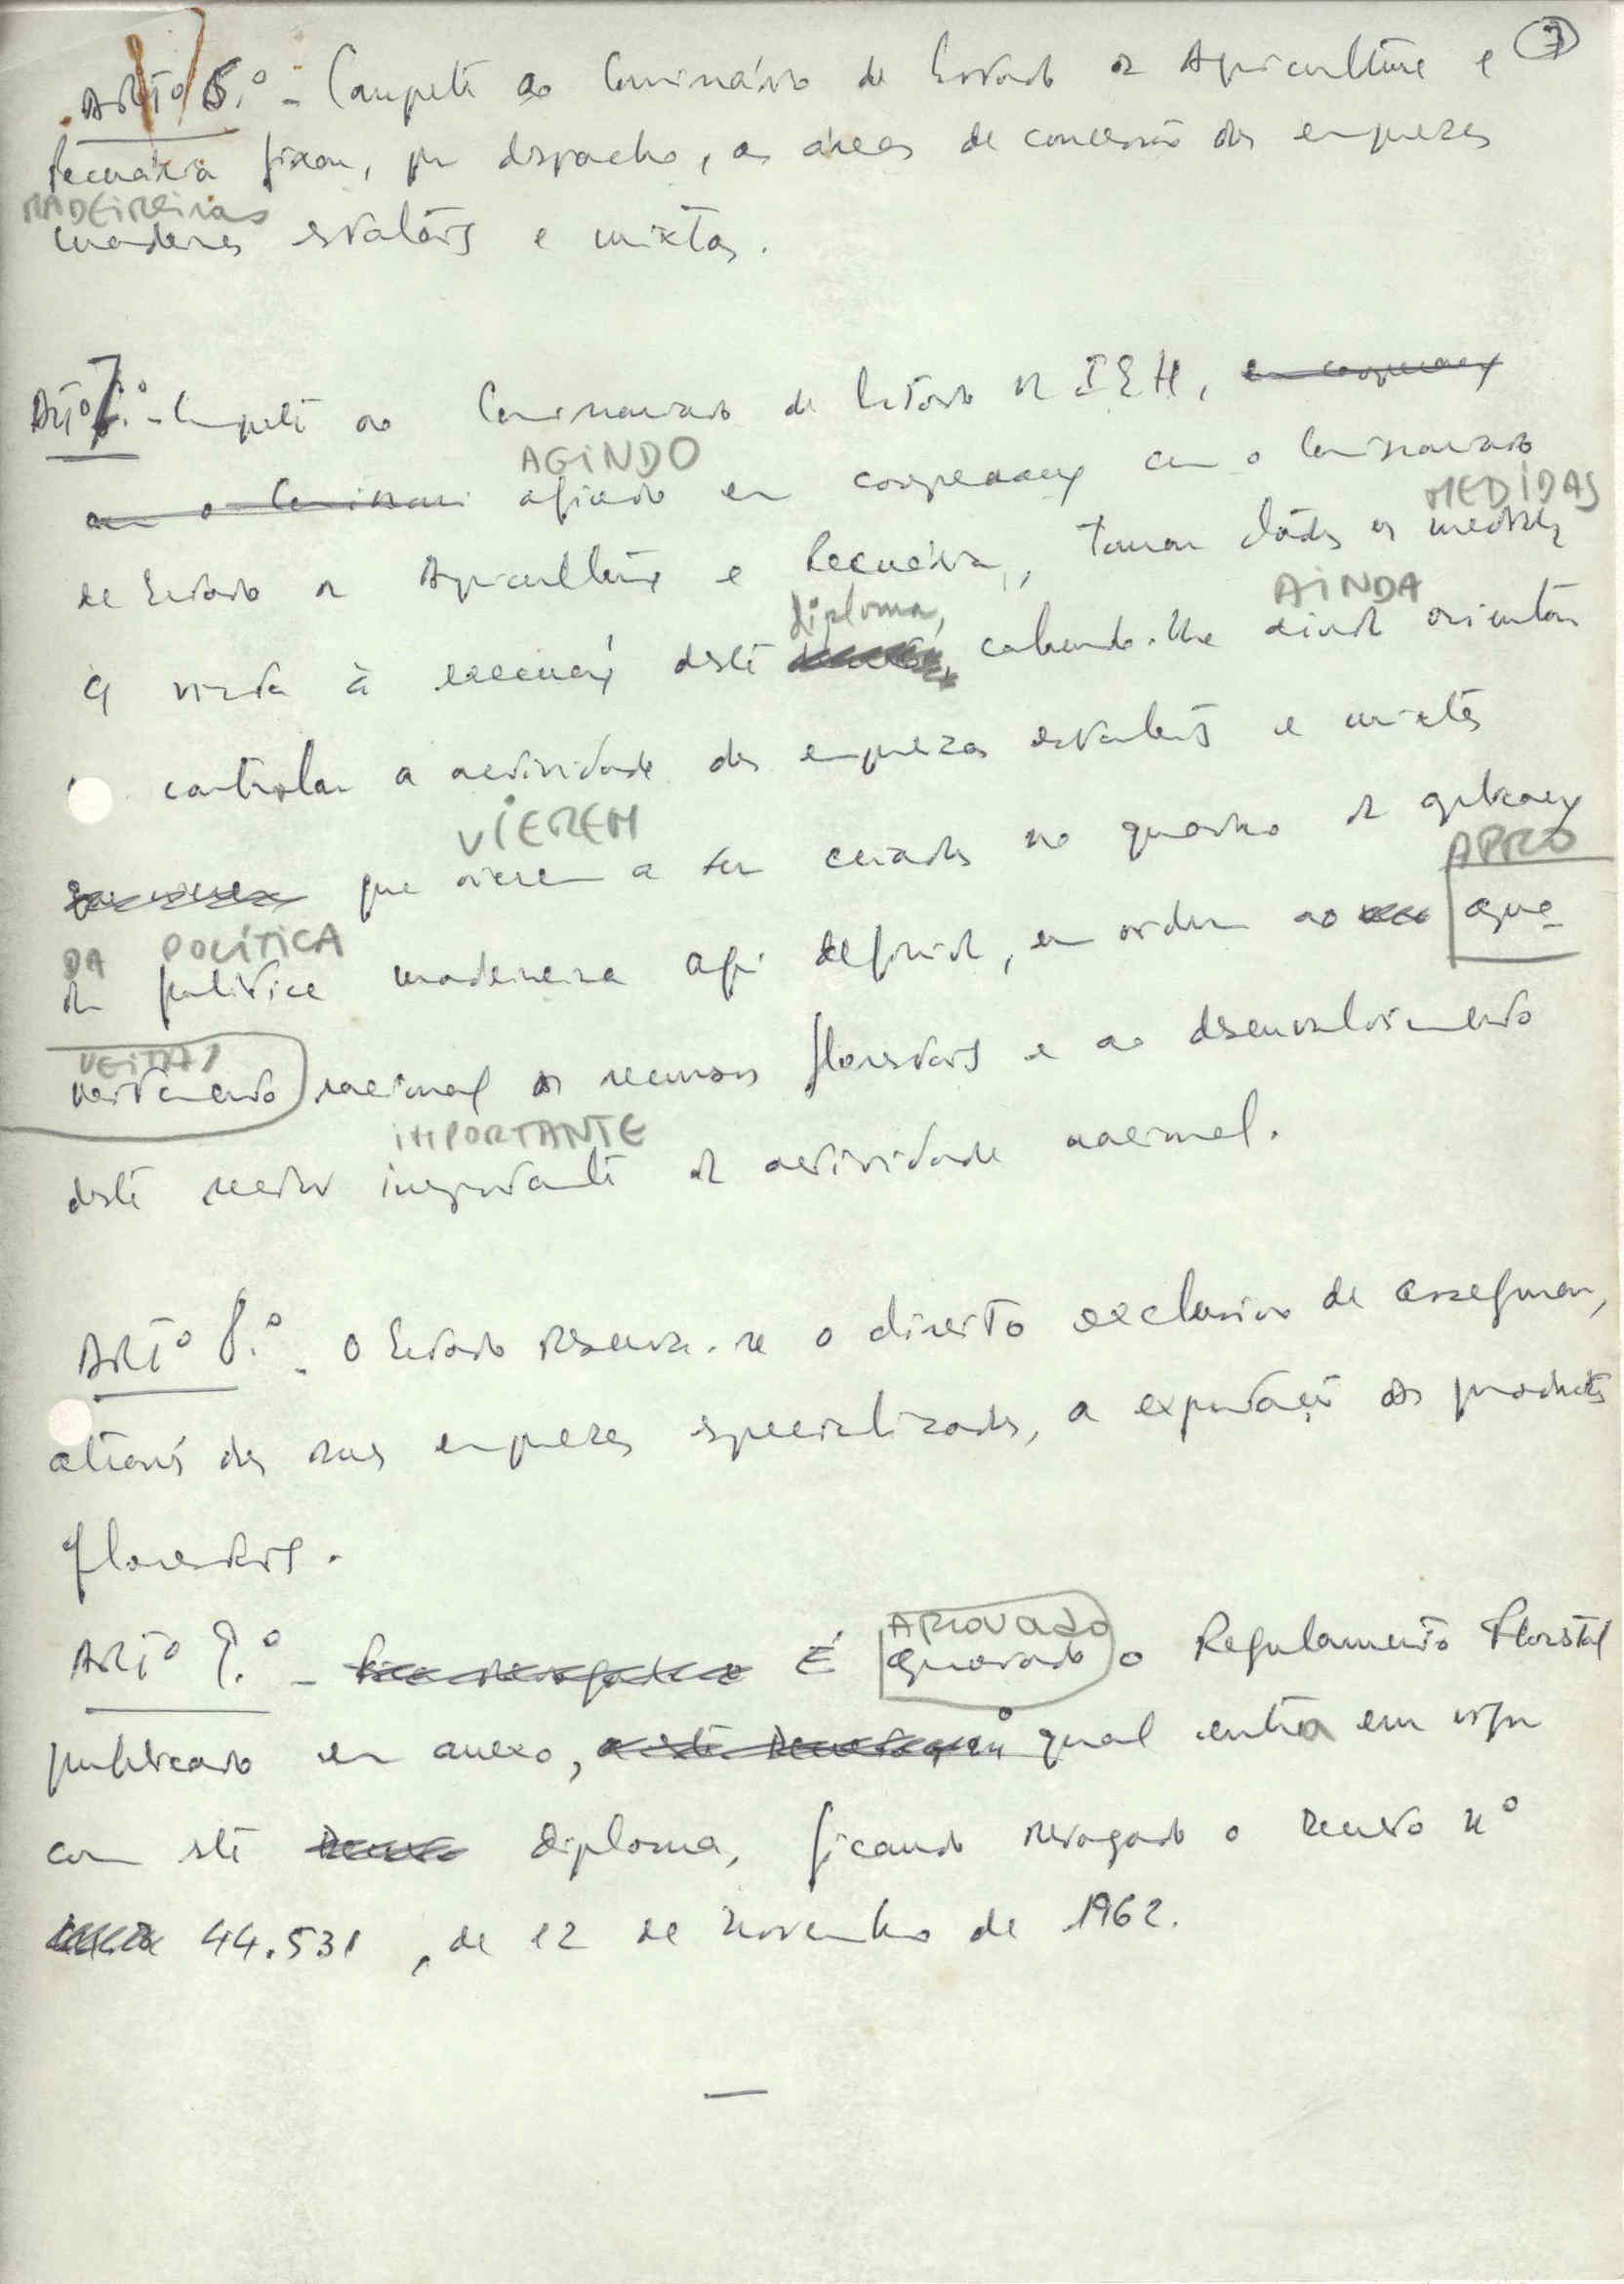 ③
ARTº 6.º - Compete ao Comissário de Estado da Agricultura e
Pecuária fixar, por despacho, as áreas de concessão das empresas
MADEIREIRAS
madeiras estatais e mixtas.
ARTº 7.º - Compete ao Comissariado de Estado da I E H, em cooperação
AGINDO
com o Comissari agindo em cooperação com o Comissariado
MEDIDAS
de Estado da Agricultura e Pecuária, tomar todas as medidas
diploma, AINDA
com vista à execução deste cabendo-lhe ainda orientar
e controlar a actividade das empresas estatais e mixtas
VIEREM
que vierem a ser criadas no quadro da aplicação
APRO
DA POLÍTICA
da política madeireira aqui definida, em ordem ao apro-
VEITA/
veitamento racional dos recursos florestais e ao desenvolvimento
IMPORTANTE
deste sector importante da actividade nacional.
ARTº 8.º - O Estado reserva-se o direito exclusivo de assegurar,
através das suas empresas especializadas, a exportação dos productos
florestais.
APROVADO
ARTº 9.º - É aprovado o Regulamento Florestal
publicado em anexo, o qual entra em vigor
com este diploma, ficando revogado o Decreto nº
44.531, de 12 de Novembro de 1962.